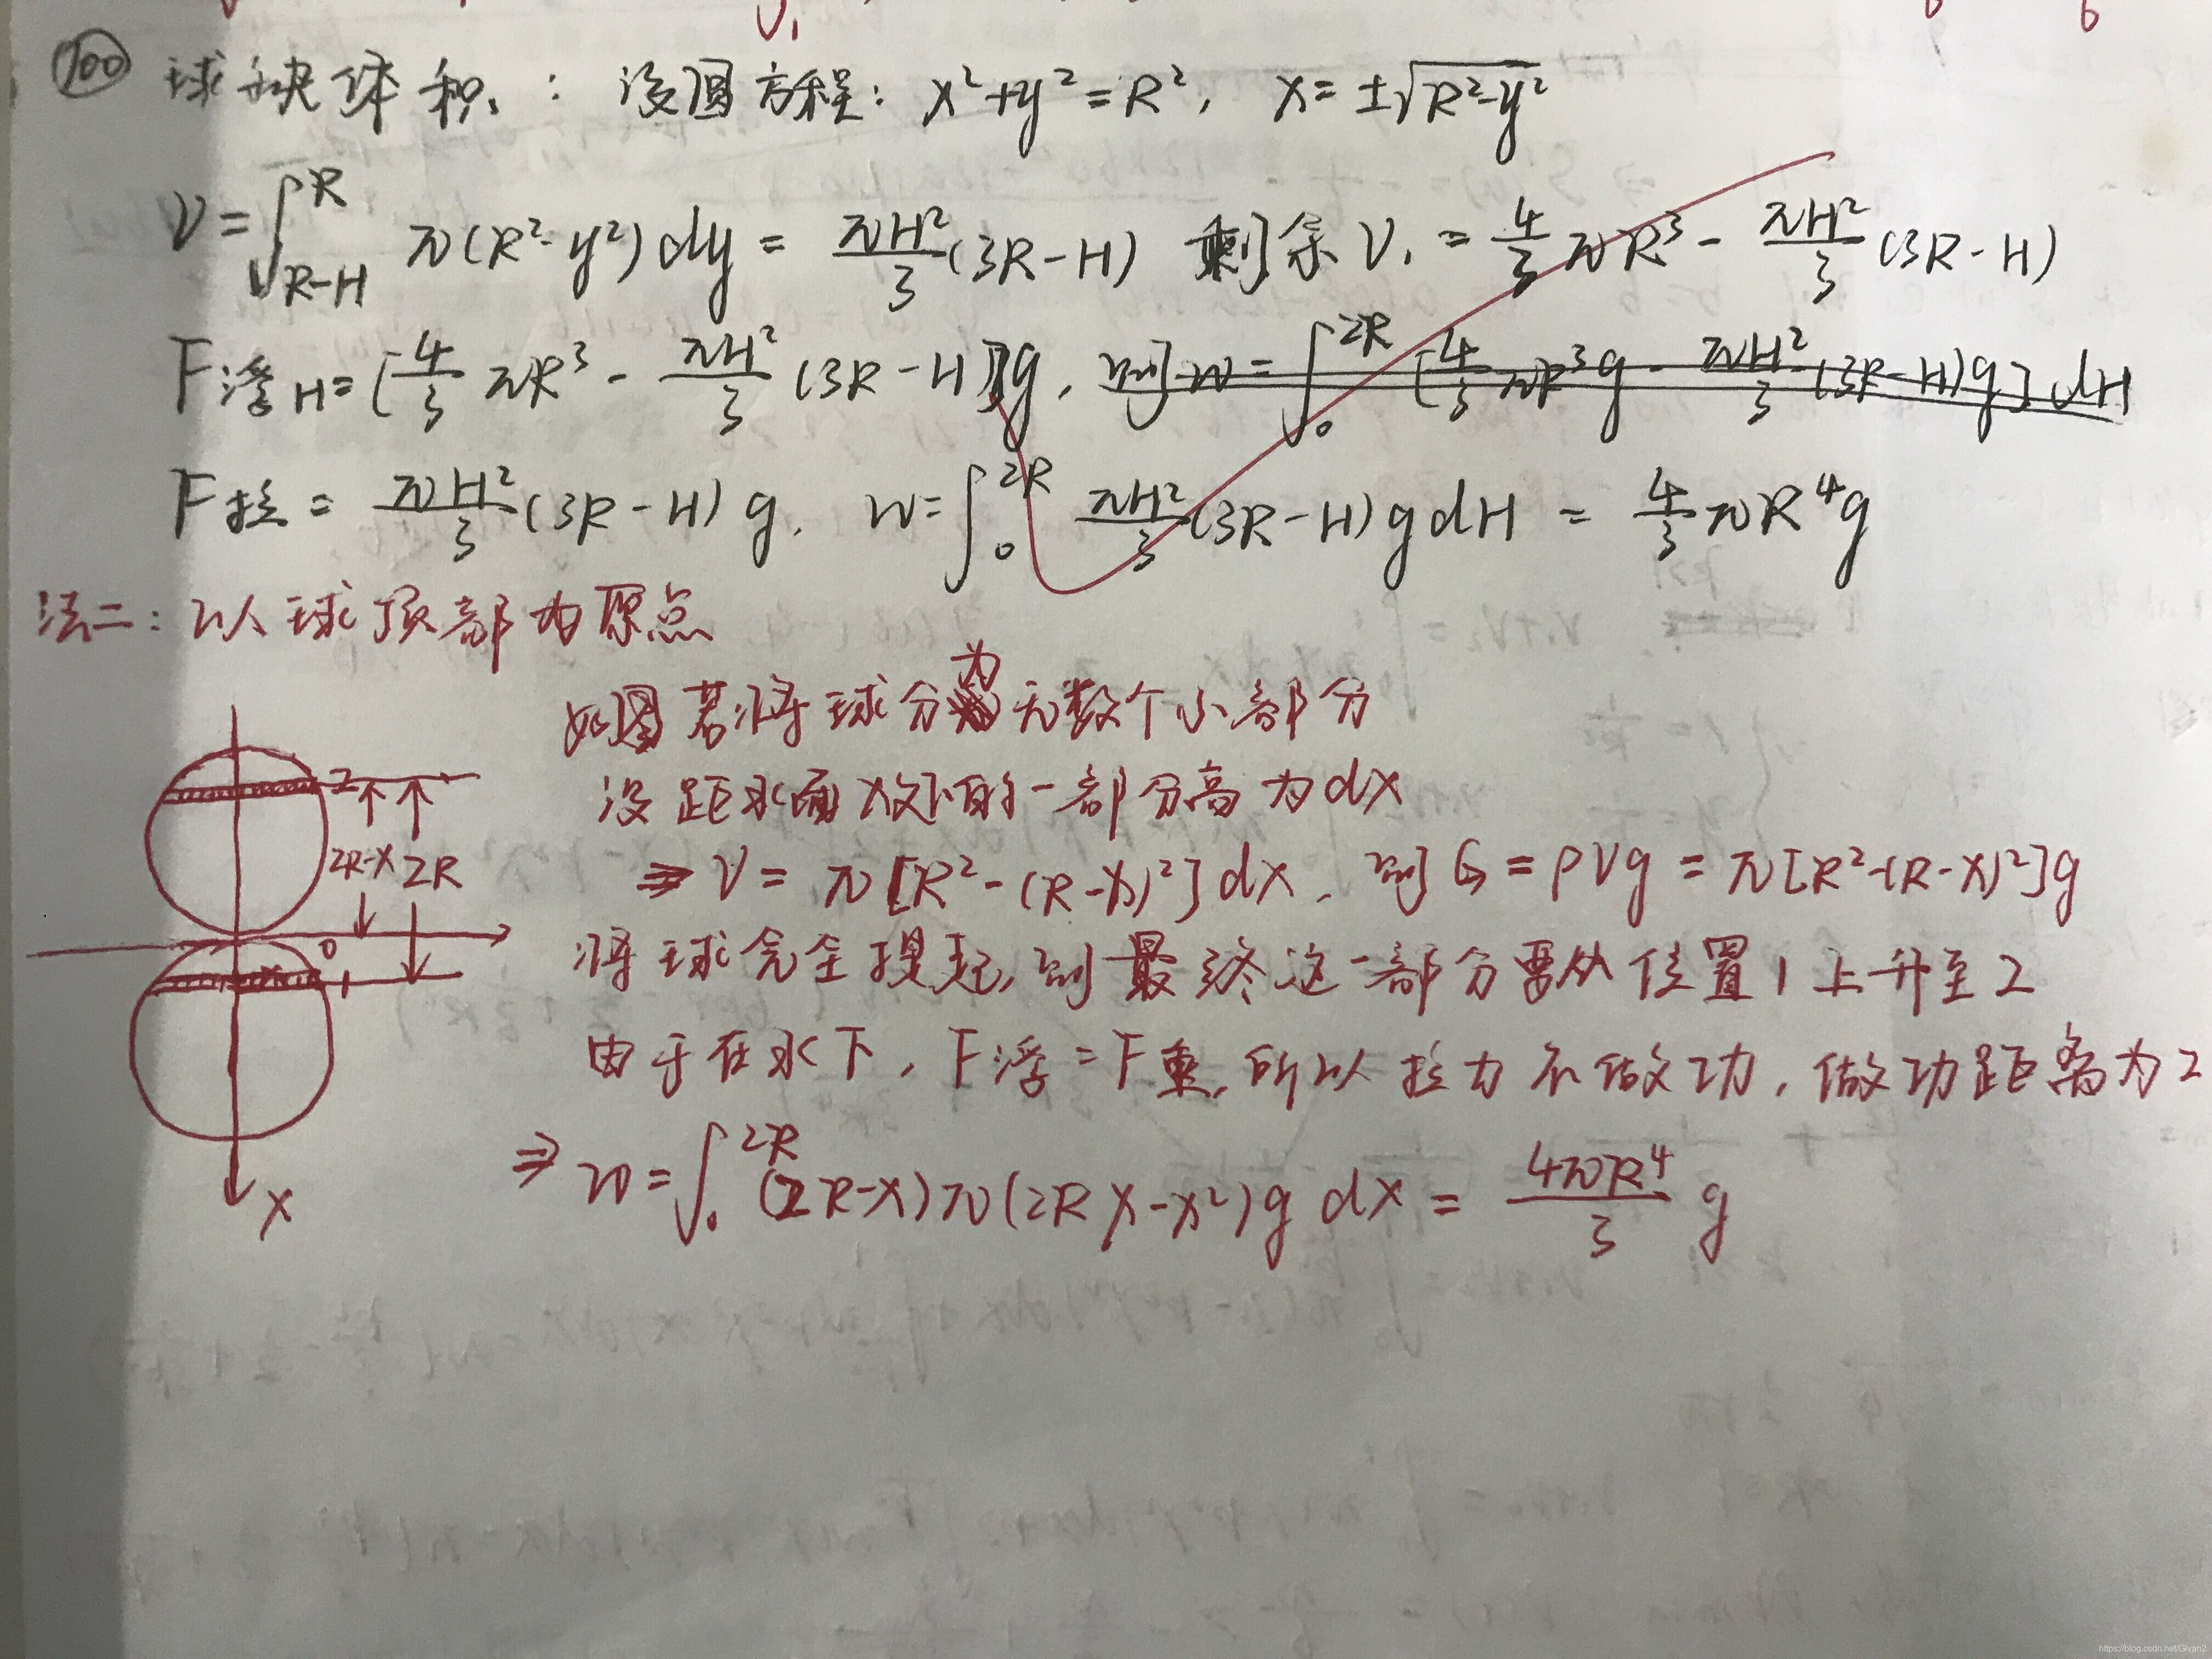 100 球缺体积：设圆方程：x²+y²=R²，x=±√(R²-y²)
V=∫_{R-H}^{R} π(R²-y²)dy = πH²/3 (3R-H) 剩余V₁ = 4/3 πR³ - πH²/3 (3R-H)
F浮H=[4/3 πR³ - πH²/3 (3R-H)]g，则W=∫_0^{2R} [4/3 πR³g - πH²/3 (3R-H)g]dH
F拉 = πH²/3 (3R-H)g. W=∫_0^{2R} πH²/3 (3R-H)g dH = 4/3 πR⁴g
法二：以球顶部为原点
如图若将球分为无数个小部分
设距水面x处下的一部分高为dx
⇒ V = π[R²-(R-x)²]dx，则G=ρVg=π[R²-(R-x)²]g
将球完全提起，则最终这一部分要从位置1上升至2
由于在水下，F浮=F重，所以拉力不做功，做功距离为2
⇒ W=∫_0^{2R} (2R-x)π(2Rx-x²)g dx = 4πR⁴/3 g
2
2R-x 2R
0
1
x
https://blog.csdn.net/Givan2